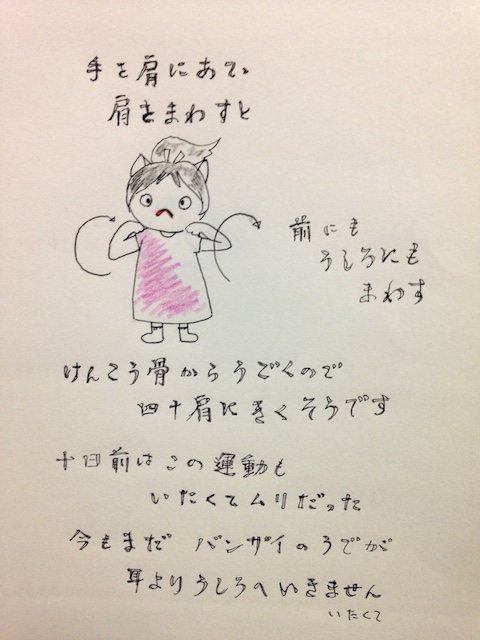 手を肩にあて、
肩をまわすと
前にも
うしろにも
まわす
けんこう骨からうごくので
四十肩にきくそうです
十日前はこの運動も
いたくてムリだった
今もまだ バンザイのうでが
耳よりうしろへいきません
いたくて